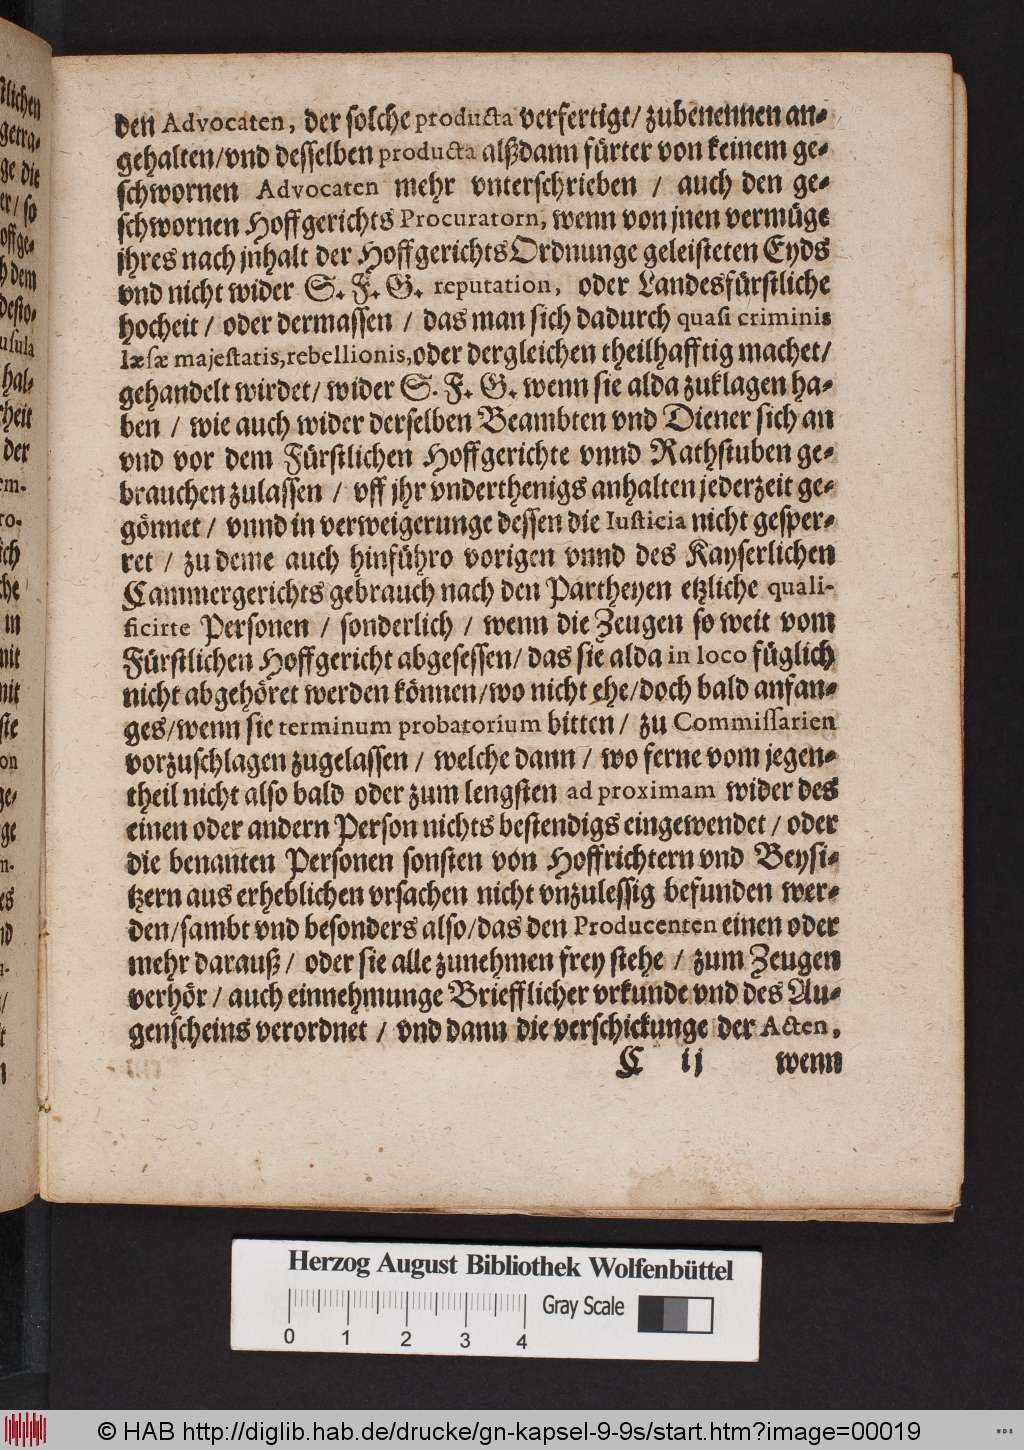 den Advocaten, der solche producta verfertigt/ zubenennen an-
gehalten/vnd desselben producta alßdann fürter von keinem ge-
schwornen Advocaten mehr vnterschrieben / auch den ge-
schwornen Hoffgerichts Procuratorn, wenn von jnen vermüge
jhres nach jnhalt der Hoffgerichts Ordnunge geleisteten Eyds
vnd nicht wider S. F. G. reputation, oder Landesfürstliche
hocheit / oder dermassen / das man sich dadurch quasi criminis
læsæ majestatis, rebellionis, oder dergleichen theilhafftig machet/
gehandelt wirdet/ wider S. F. G. wenn sie alda zuklagen ha-
ben / wie auch wider derselben Beambten vnd Diener sich an
vnd vor dem Fürstlichen Hoffgerichte vnnd Rathstuben ge-
brauchen zulassen / vff jhr vnderthenigs anhalten jederzeit ge-
gönnet / vnnd in verweigerunge dessen die Iusticia nicht gesper-
ret / zu deme auch hinführo vorigen vnnd des Kayserlichen
Cammergerichts gebrauch nach den Partheyen etzliche quali-
ficirte Personen / sonderlich / wenn die Zeugen so weit vom
Fürstlichen Hoffgericht abgesessen/ das sie alda in loco füglich
nicht abgehöret werden können/wo nicht ehe/doch bald anfan-
ges/wenn sie terminum probatorium bitten/ zu Commissarien
vorzuschlagen zugelassen / welche dann / wo ferne vom jegen-
theil nicht also bald oder zum lengsten ad proximam wider des
einen oder andern Person nichts bestendigs eingewendet / oder
die benanten Personen sonsten von Hoffrichtern vnd Beysi-
tzern aus erheblichen vrsachen nicht vnzulessig befunden wer-
den/sambt vnd besonders also/das den Producenten einen oder
mehr darauß / oder sie alle zunehmen frey stehe / zum Zeugen
verhör / auch einnehmunge Briefflicher vrkunde vnd des Au-
genscheins verordnet / vnd dann die verschickunge der Acten,
C ij wenn
Herzog August Bibliothek Wolfenbüttel
Gray Scale
0 1 2 3 4
© HAB http://diglib.hab.de/drucke/gn-kapsel-9-9s/start.htm?image=00019